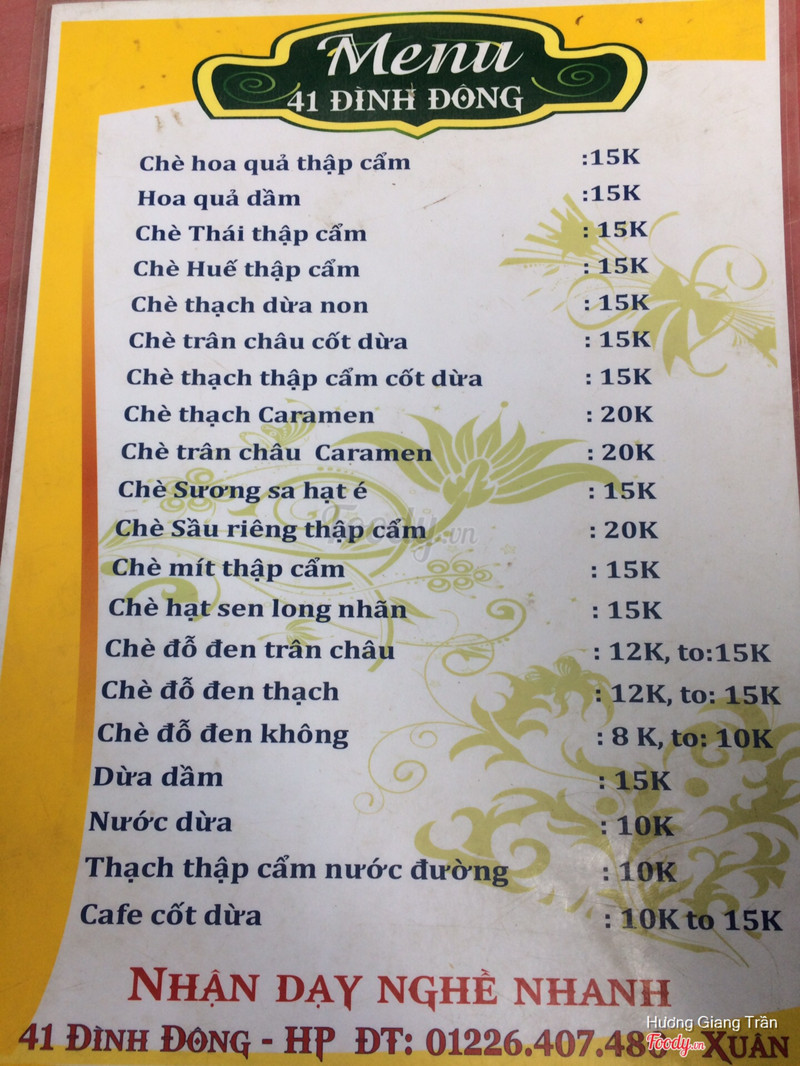 Menu
41 ĐÌNH ĐÔNG
Chè hoa quả thập cẩm :15K
Hoa quả dầm :15K
Chè Thái thập cẩm : 15K
Chè Huế thập cẩm : 15K
Chè thạch dừa non : 15K
Chè trân châu cốt dừa : 15K
Chè thạch thập cẩm cốt dừa : 15K
Chè thạch Caramen : 20K
Chè trân châu Caramen : 20K
Chè Sương sa hạt é : 15K
Chè Sầu riêng thập cẩm : 20K
Foody.vn
Chè mít thập cẩm : 15K
Chè hạt sen long nhãn : 15K
Chè đỗ đen trân châu : 12K, to:15K
Chè đỗ đen thạch : 12K, to: 15K
Chè đỗ đen không : 8 K, to: 10K
Dừa dầm : 15K
Nước dừa : 10K
Thạch thập cẩm nước đường : 10K
Cafe cốt dừa : 10K to 15K
NHẬN DẠY NGHỀ NHANH
41 ĐÌNH ĐÔNG - HP ĐT: 01226.407.480 - XUÂN
Hương Giang Trần
Foody.vn